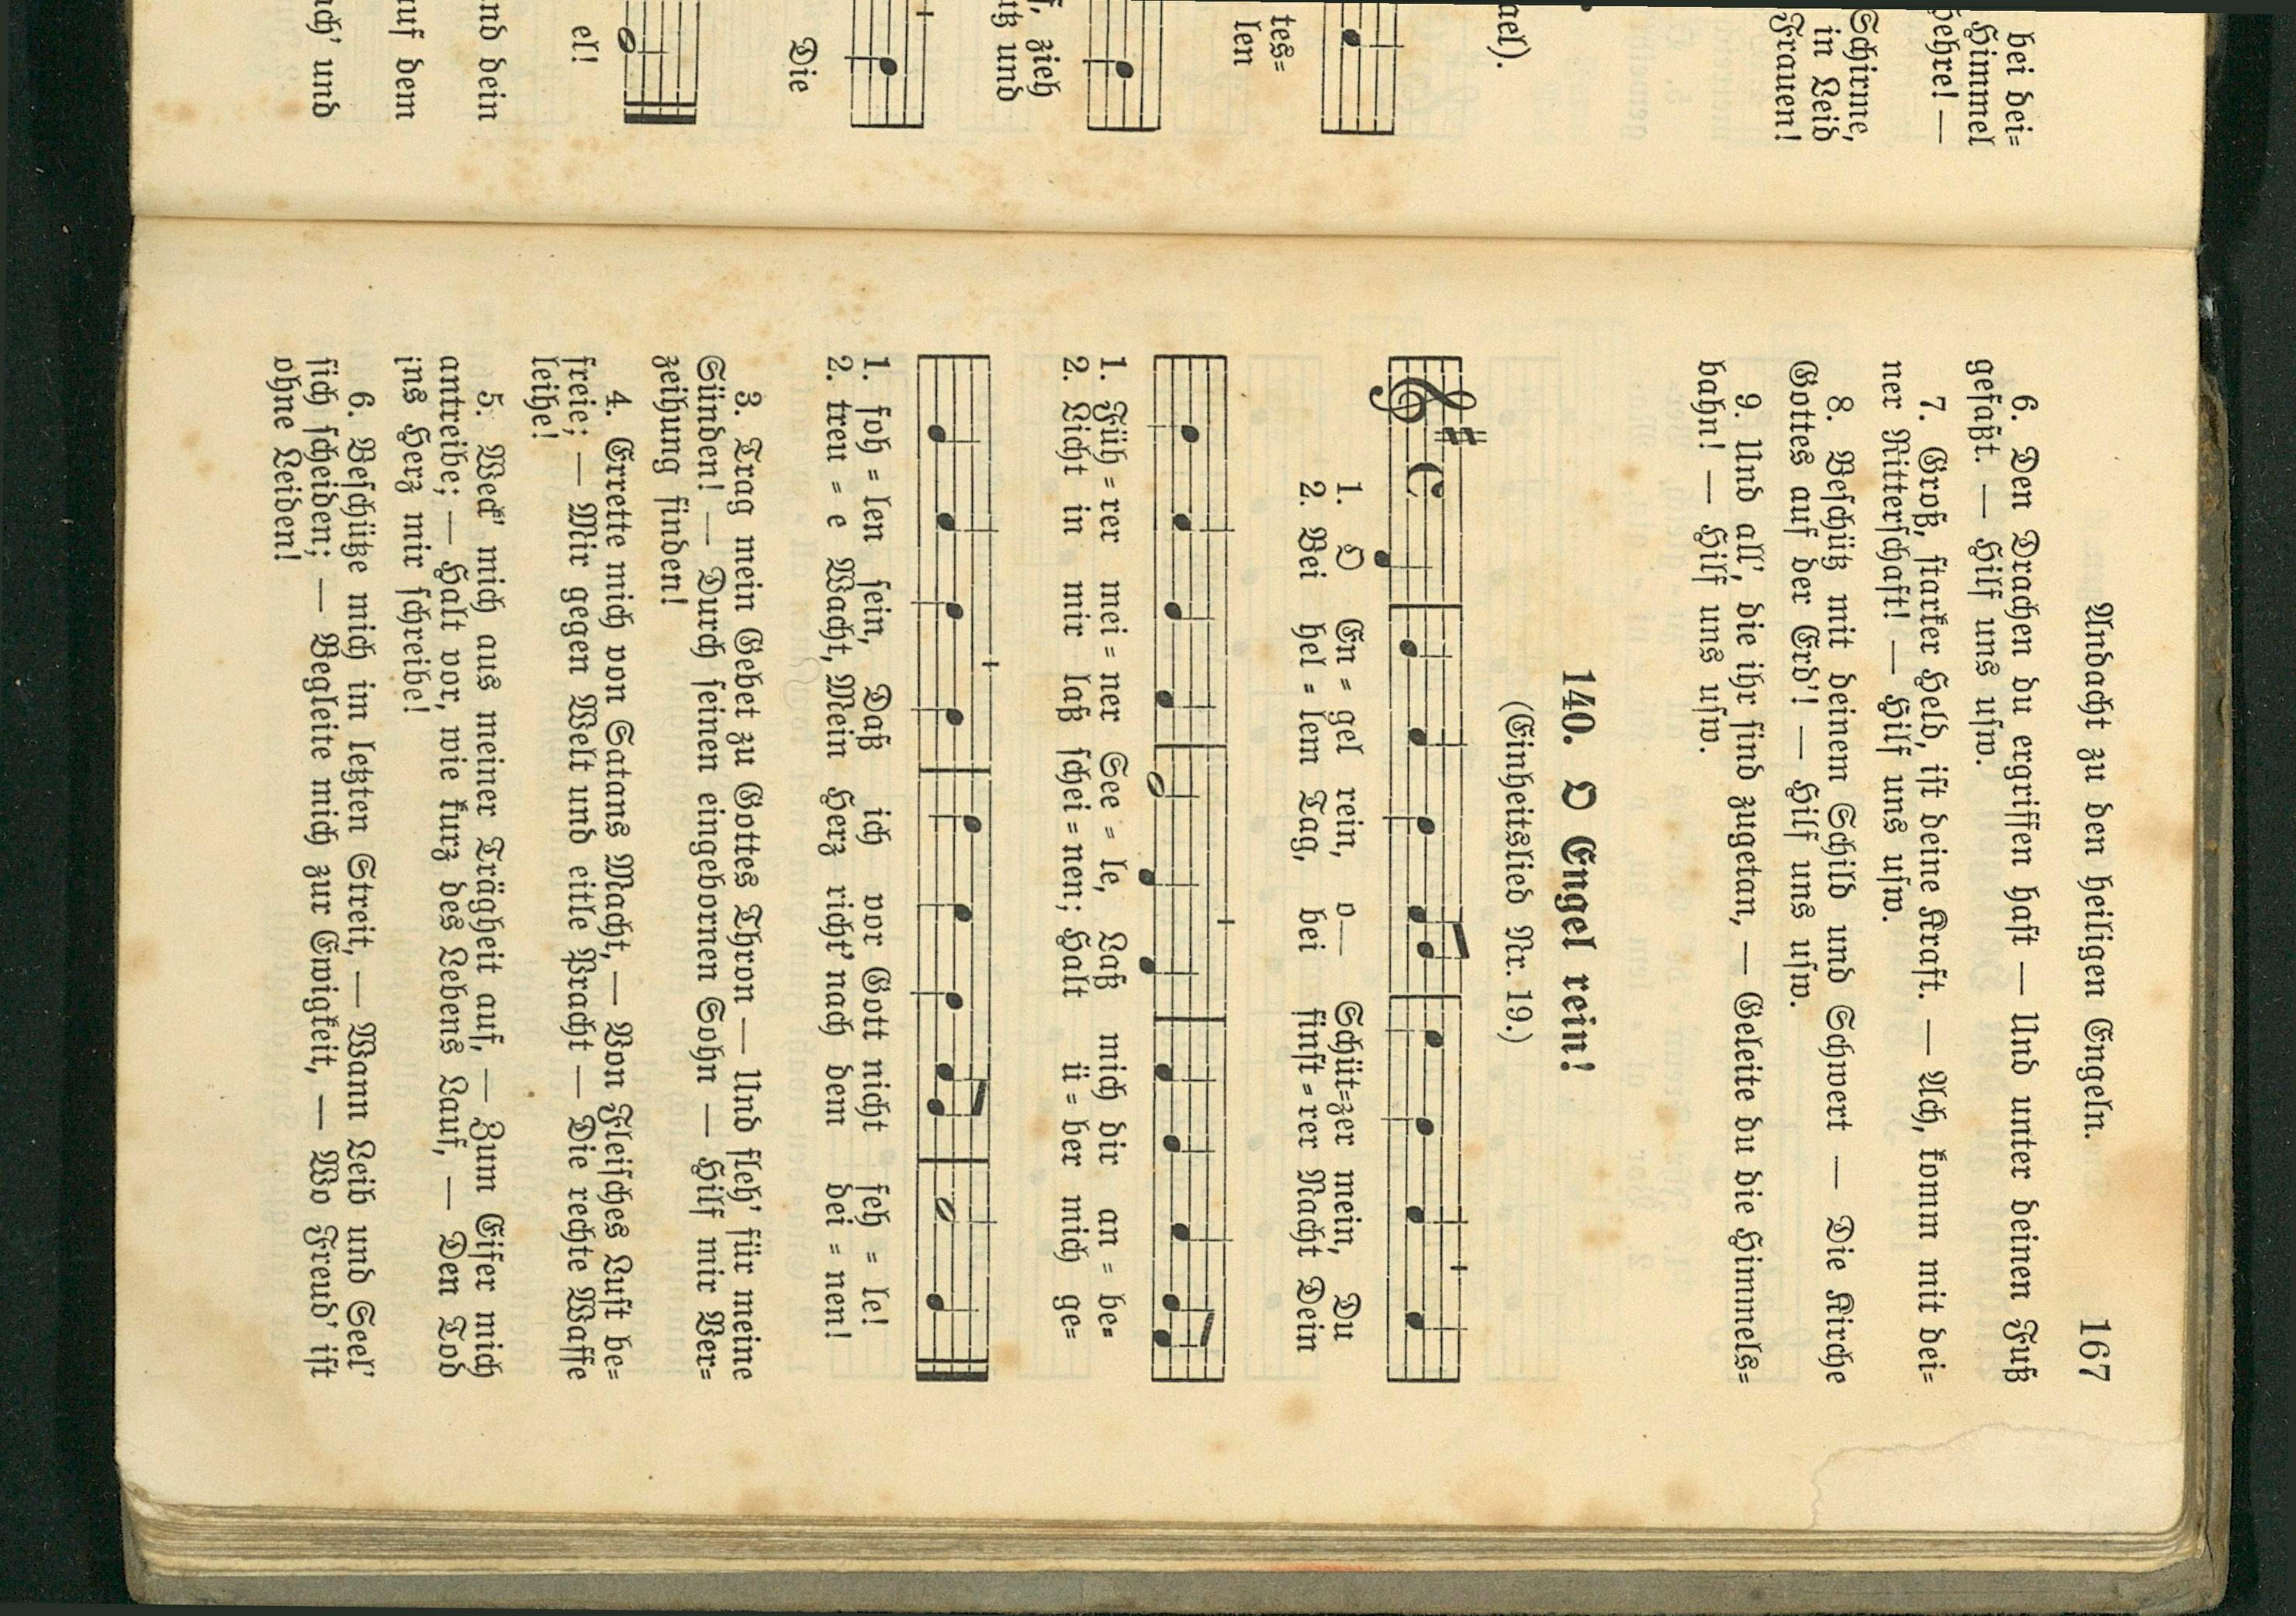 bei dei=
Himmel
Schirme,
in Leid
Frauen!
tes=
len
zieh
und
Die
el!
und dein
auf dem
ach' und
Andacht zu den heiligen Engeln. 167
6. Den Drachen du ergriffen hast — Und unter deinen Fuß
gefaßt. — Hilf uns usw.
7. Groß, starker Held, ist deine Kraft. — Ach, komm mit dei=
ner Ritterschaft! — Hilf uns usw.
8. Beschütz mit deinem Schild und Schwert — Die Kirche
Gottes auf der Erd'! — Hilf uns usw.
9. Und all', die ihr sind zugetan, — Geleite du die Himmels=
bahn! — Hilf uns usw.
140. O Engel rein!
(Einheitslied Nr. 19.)
1. O En = gel rein, o— Schüt=zer mein, Du
2. Bei hel = lem Tag, bei finst = rer Nacht Dein
1. Füh = rer mei = ner See = le, Laß mich dir an = be=
2. Licht in mir laß schei = nen; Halt ü = ber mich ge=
1. foh = len sein, Daß ich vor Gott nicht feh = le!
2. treu = e Wacht, Mein Herz richt' nach dem dei = nen!
3. Trag mein Gebet zu Gottes Thron — Und fleh' für meine
Sünden! — Durch seinen eingebornen Sohn — Hilf mir Ver=
zeihung finden!
4. Errette mich von Satans Macht, — Von Fleisches Lust be=
freie; — Mir gegen Welt und eitle Pracht — Die rechte Waffe
leihe!
5. Weck' mich aus meiner Trägheit auf, — Zum Eifer mich
antreibe; — Halt vor, wie kurz des Lebens Lauf, — Den Tod
ins Herz mir schreibe!
6. Beschütze mich im letzten Streit, — Wann Leib und Seel'
sich scheiden; — Begleite mich zur Ewigkeit, — Wo Freud' ist
ohne Leiden!